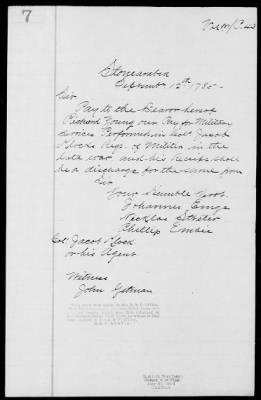 7
Stonearabia
September 12th 1785 -
Sir
Pay to the Bearer hereof
Richard Young our Pay for Militia
Services Performed in Col. Jacob
Klocks Regt. of Militia in the
late war and his Receipt shall
be a discharge for the same from
Sir
Your Humble Servt.
Johannes Emge
Nicklas Streter
Phillip Embie
Col. Jacob Klock
or his Agent
Witness
John Getman